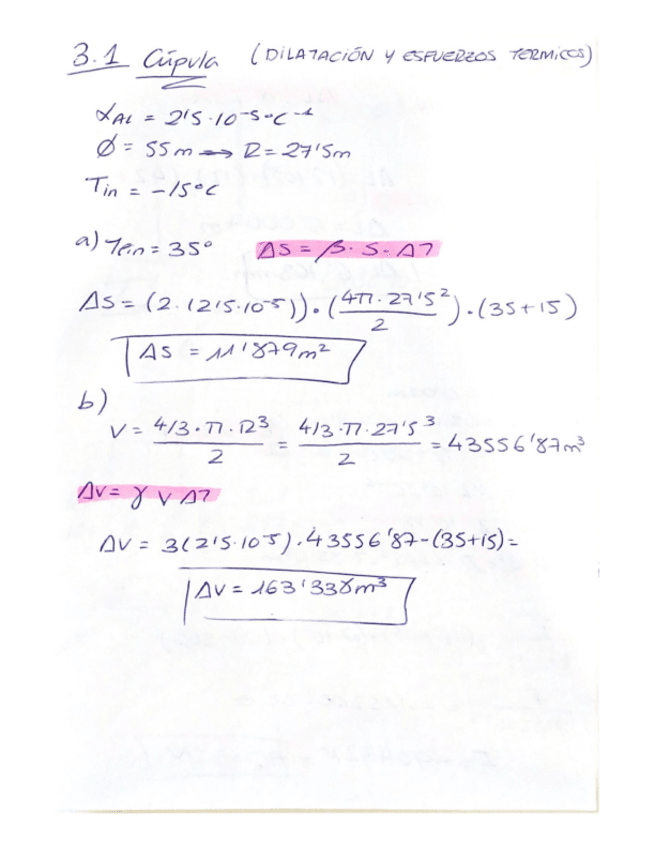 3.1 Cúpula (DILATACIÓN Y ESFUERZOS TERMICOS)
αAL = 2'5·10⁻⁵ °C⁻¹
Ø = 55 m → R = 27'5 m
Tin = -15°C
a) Tfin = 35° ΔS = β · S · ΔT
ΔS = (2·(2'5·10⁻⁵))·(4π·27'5²/2)·(35+15)
ΔS = 11'879 m²
b)
V = 4/3·π·R³/2 = 4/3·π·27'5³/2 = 43556'87 m³
ΔV = γ V ΔT
ΔV = 3(2'5·10⁻⁵)·43556'87-(35+15) =
ΔV = 163'338 m³